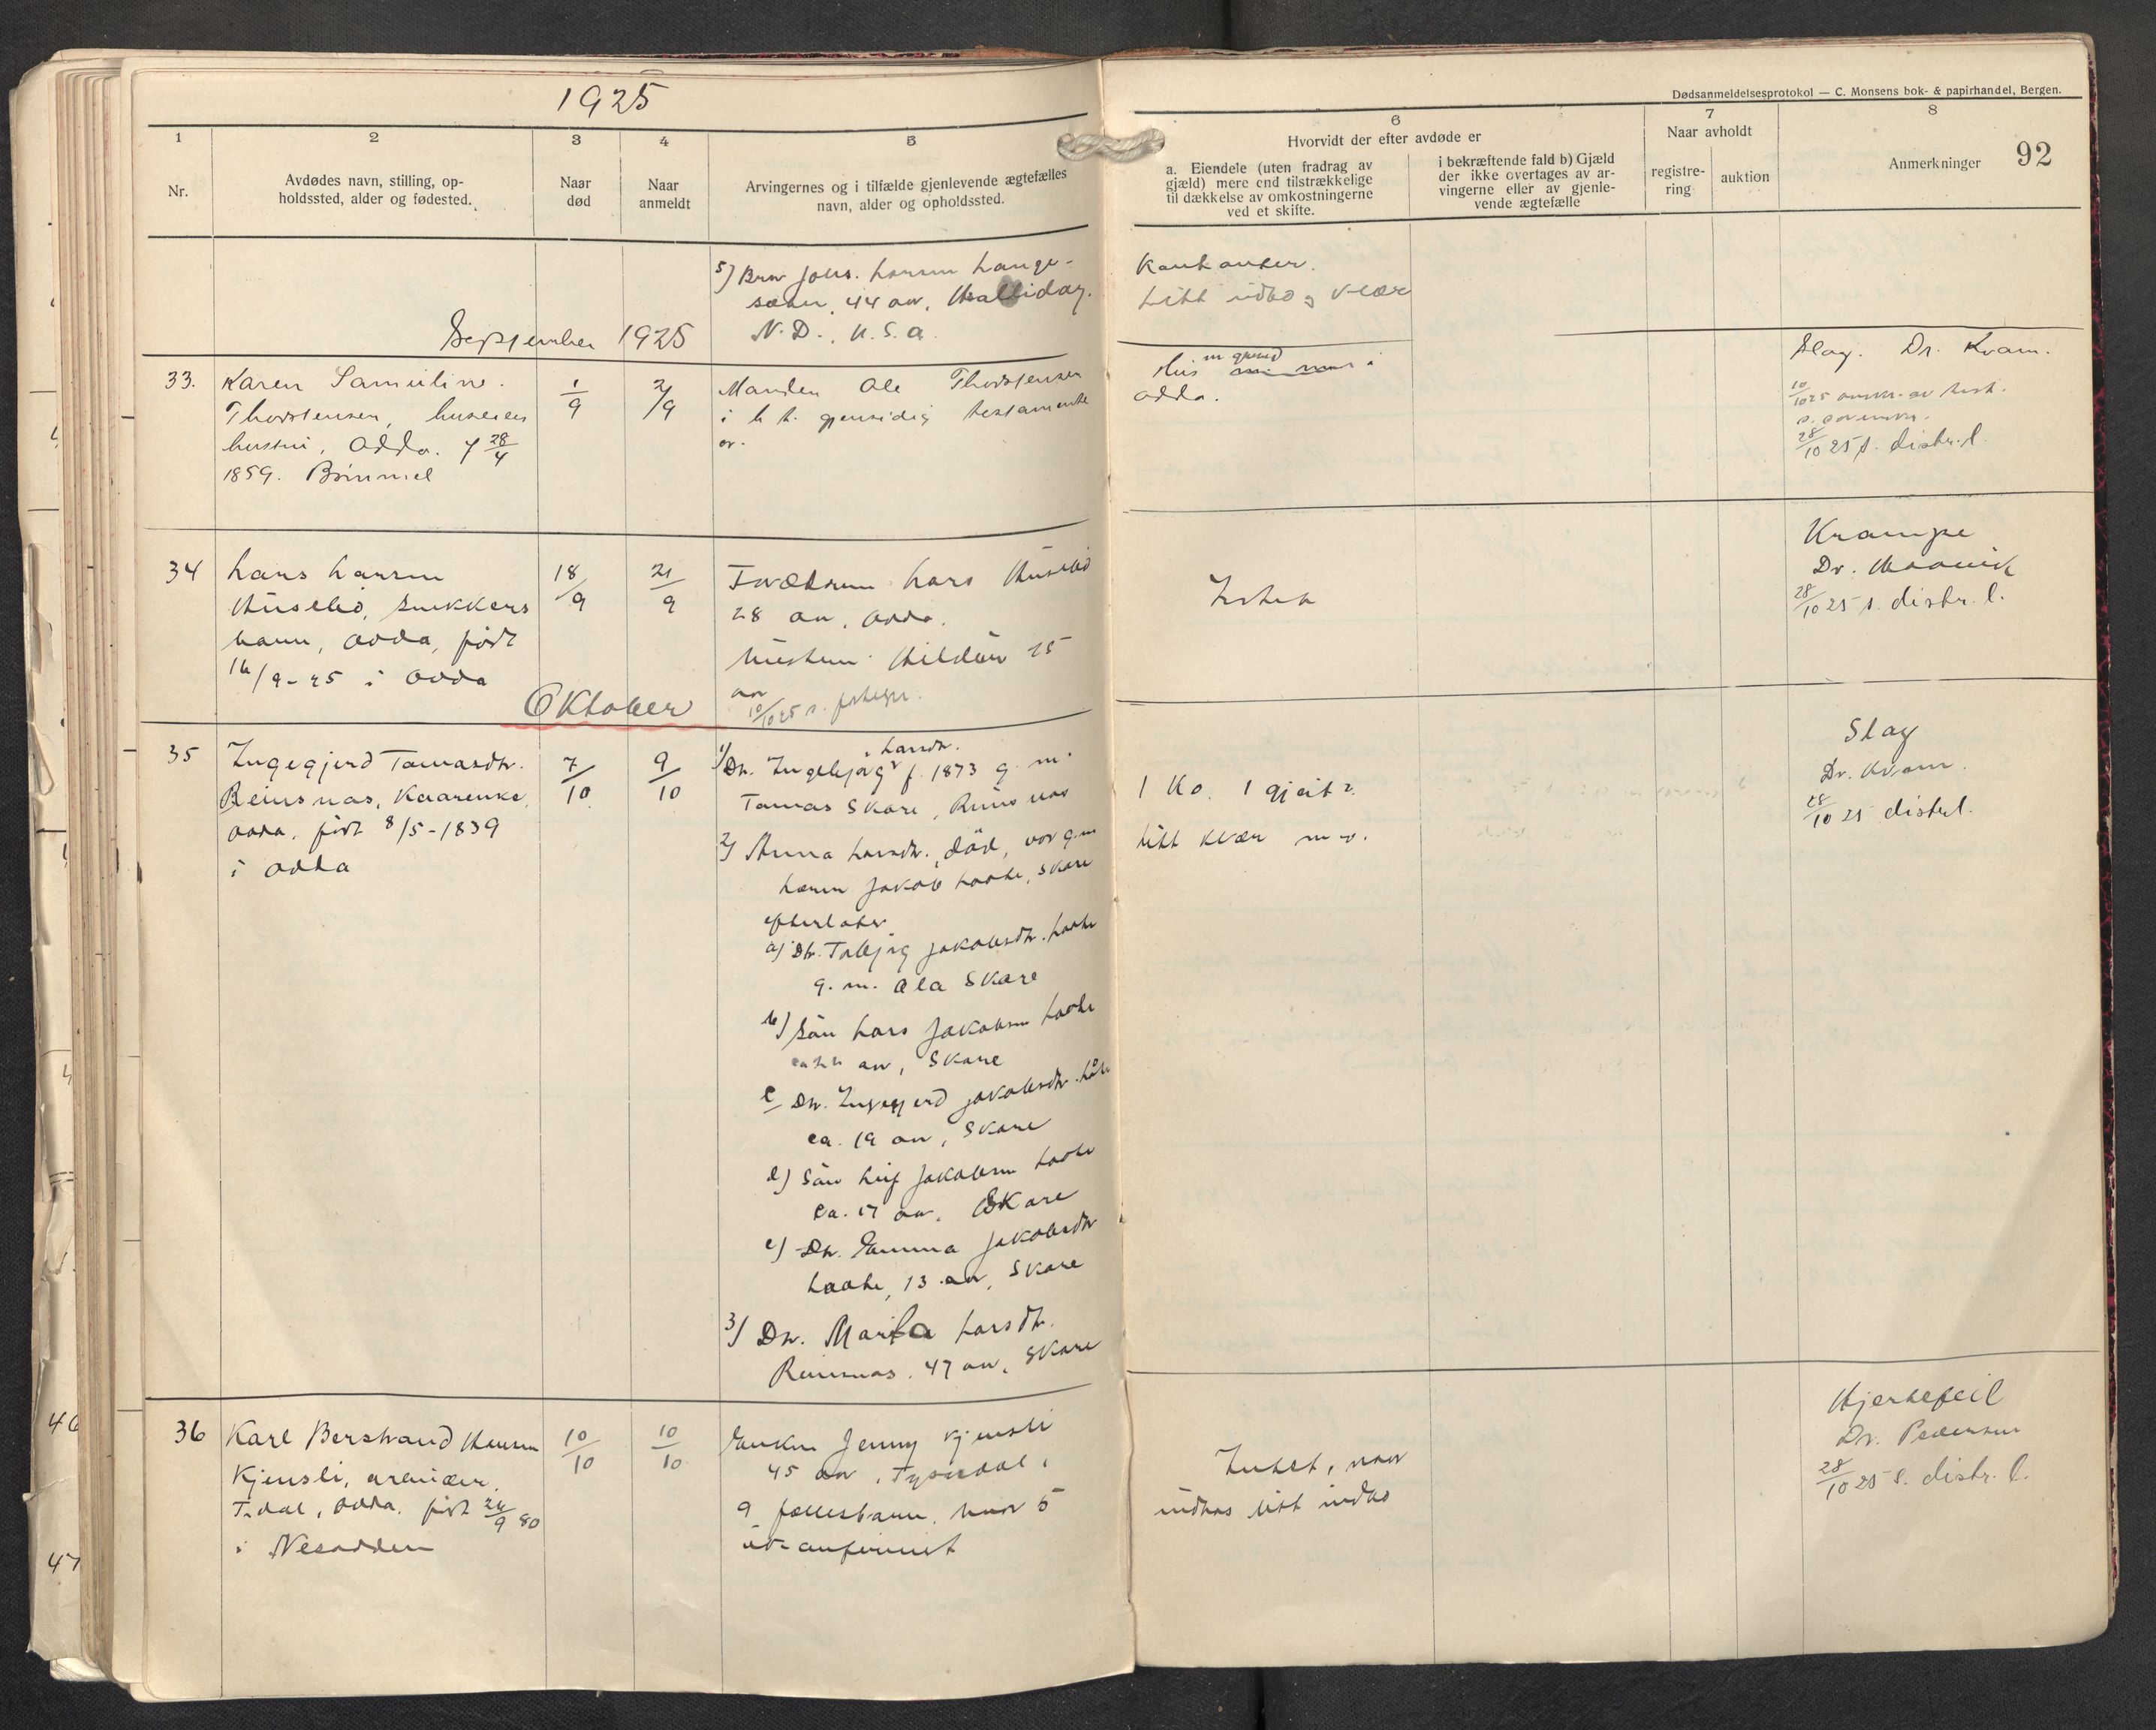 1925
Dødsanmeldelsesprotokol — C. Monsens bok- & papirhandel, Bergen.
92
1
2
3
4
5
6
7
8
Nr.
Avdødes navn, stilling, op-
holdssted, alder og fødested.
Naar
død
Naar
anmeldt
Arvingernes og i tilfælde gjenlevende ægtefælles
navn, alder og opholdssted.
Hvorvidt der efter avdøde er
a. Eiendele (uten fradrag av
gjæld) mere end tilstrækkelige
til dækkelse av omkostningerne
ved et skifte.
i bekræftende fald b) Gjæld
der ikke overtages av ar-
vingerne eller av gjenle-
vende ægtefælle
Naar avholdt
registre-
ring
auktion
Anmerkninger
5) Bror Johs. Larsen Lange-
44 aar, Halliday.
N. D., U. S. A.
Kontanter.
Litt indbo og klær
September 1925
33.
Karen Samueline
Thorstensen, huseiers
hustru, Odda. f 28/4
1859. Bømmel
1/9
2/9
Manden Ole Thorstensen
i h. t. gjensidig testamente
Hus m grund i
Odda.
Slag. Dr. Kvam.
10/10 25
28/10 25 s. distr. l.
34
Lars Larsen
Husebø, snekkers
barn, Odda, født
16/9-25 i Odda
18/9
21/9
Forældrene Lars Husebø
28 aar, Odda.
hustru 25
aar
10/10 25 s.
Intet
Krampe
Dr.
28/10 25 s. distr. l.
Oktober
35
Ingegjerd Tomasdtr.
Reinsnos, Kaarenke,
Odda, født 8/5-1839
i Odda
7/10
9/10
1) Dtr. Ingebjørg Larsdtr. f. 1873 g. m.
Tomas Skare, Reinsnos
2) Anna Larsdtr., død, var g.m
Jakob Laate, Skare
efterlater
a) Dtr. Tobjørg Jakobsdtr. Laate
g. m. Ola Skare
b) Søn Lars Jakobsen Laate
aar, Skare
c Dtr. Ingegjerd Jakobsdtr. Låte
ca. 19 aar, Skare
d) Søn Leif Jakobsen Laate
ca. 17 aar, Skare
e) Dtr. Emma Jakobsdtr
Laate, 13 aar, Skare
3) Dtr. Marta Larsdtr.
Reinsnos, 47 aar, Skare
1 Ko, 1 gjeit
litt klær m v.
Slag
Dr. Kvam.
28/10 25 distr. l.
36
Karl Berstrand Hansen
Kjensli, arbeider,
T.dal, Odda, født 26/9 80
i Nesodden
10/10
10/10
Enken Jenny Kjensli
45 aar, Tyssedal,
9 fællesbarn, hvor 5
er anfømet
Intet, naar
undtas litt indbo
Hjertefeil
Dr. Pedersen
28/10 25 s. distr. l.